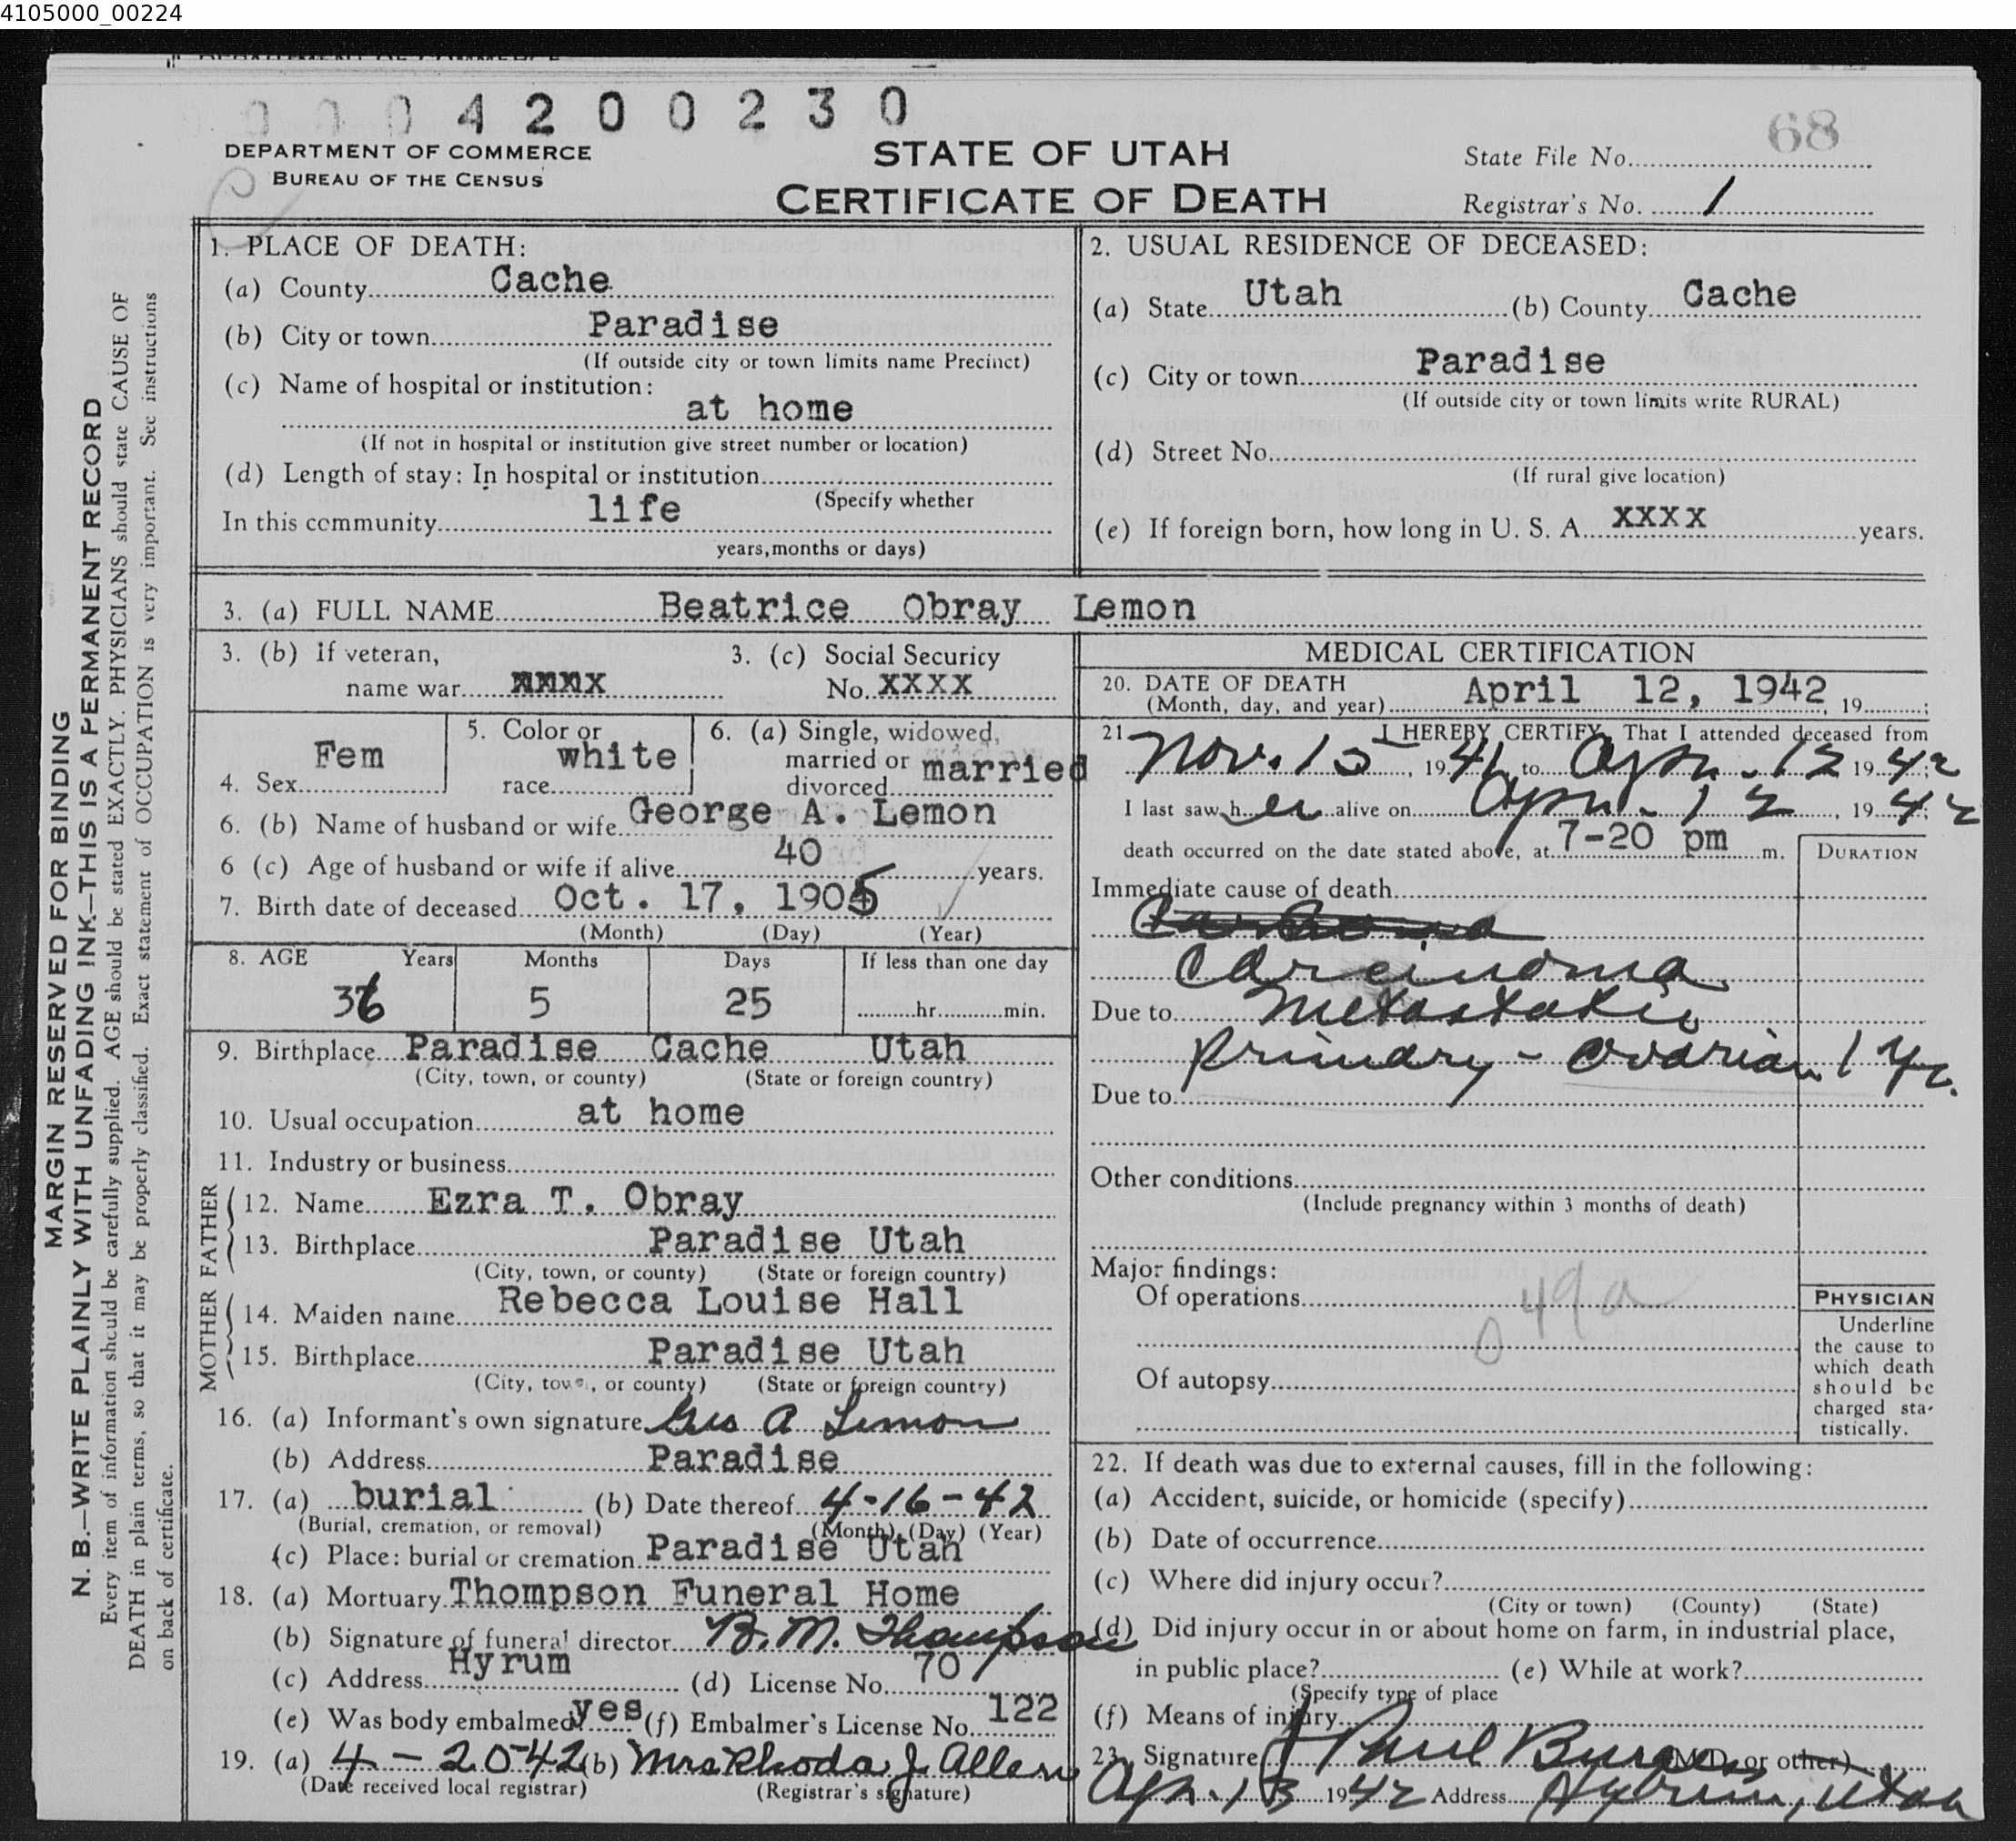 4105000_00224
0 0 0 4 2 0 0 2 3 0
68
DEPARTMENT OF COMMERCE
BUREAU OF THE CENSUS
STATE OF UTAH
CERTIFICATE OF DEATH
State File No.
Registrar's No. 1
MARGIN RESERVED FOR BINDING
N. B.—WRITE PLAINLY WITH UNFADING INK—THIS IS A PERMANENT RECORD
Every item of information should be carefully supplied. AGE should be stated EXACTLY. PHYSICIANS should state CAUSE OF
DEATH in plain terms, so that it may be properly classified. Exact statement of OCCUPATION is very important. See instructions
on back of certificate.
1. PLACE OF DEATH:
(a) County Cache
(b) City or town Paradise
(If outside city or town limits name Precinct)
(c) Name of hospital or institution:
at home
(If not in hospital or institution give street number or location)
(d) Length of stay: In hospital or institution
(Specify whether
In this community life
years, months or days)
2. USUAL RESIDENCE OF DECEASED:
(a) State Utah (b) County Cache
(c) City or town Paradise
(If outside city or town limits write RURAL)
(d) Street No.
(If rural give location)
(e) If foreign born, how long in U. S. A. XXXX years.
3. (a) FULL NAME Beatrice Obray Lemon
3. (b) if veteran,
name war XXXX
3. (c) Social Security
No. XXXX
4. Sex Fem
5. Color or
race white
6. (a) Single, widowed,
married or
divorced married
6. (b) Name of husband or wife George A. Lemon
6 (c) Age of husband or wife if alive 40 years.
7. Birth date of deceased Oct. 17, 1905
(Month) (Day) (Year)
8. AGE Years Months Days If less than one day
36 5 25 hr. min.
9. Birthplace Paradise Cache Utah
(City, town, or county) (State or foreign country)
10. Usual occupation at home
11. Industry or business
FATHER
12. Name Ezra T. Obray
13. Birthplace Paradise Utah
(City, town, or county) (State or foreign country)
MOTHER
14. Maiden name Rebecca Louise Hall
15. Birthplace Paradise Utah
(City, town, or county) (State or foreign country)
16. (a) Informant's own signature Geo A Lemon
(b) Address Paradise
17. (a) burial (b) Date thereof 4-16-42
(Burial, cremation, or removal) (Month) (Day) (Year)
(c) Place: burial or cremation Paradise Utah
18. (a) Mortuary Thompson Funeral Home
(b) Signature of funeral director B. M. Thompson
(c) Address Hyrum (d) License No. 70
(e) Was body embalmed? yes (f) Embalmer's License No. 122
19. (a) 4-20-42 (b) Mrs Rhoda J. Allen
(Date received local registrar) (Registrar's signature)
MEDICAL CERTIFICATION
20. DATE OF DEATH
(Month, day, and year) April 12, 1942, 19 ;
21. I HEREBY CERTIFY, That I attended deceased from
Nov. 15, 1941 to Apr. 12 1942;
I last saw her alive on Apr. 12, 1942;
death occurred on the date stated above, at 7-20 pm m.
DURATION
Immediate cause of death
Carcinoma
Due to Metastatic
Primary - ovarian 1 yr.
Due to
Other conditions
(Include pregnancy within 3 months of death)
Major findings:
Of operations
49a
0
Of autopsy
PHYSICIAN
Underline
the cause to
which death
should be
charged sta-
tistically.
22. If death was due to external causes, fill in the following:
(a) Accident, suicide, or homicide (specify)
(b) Date of occurrence
(c) Where did injury occur?
(City or town) (County) (State)
(d) Did injury occur in or about home on farm, in industrial place,
in public place? (e) While at work?
(Specify type of place
(f) Means of injury
23. Signature J Paul Burgess (M.D. or other)
Apr. 13 1942 Address Hyrum, Utah